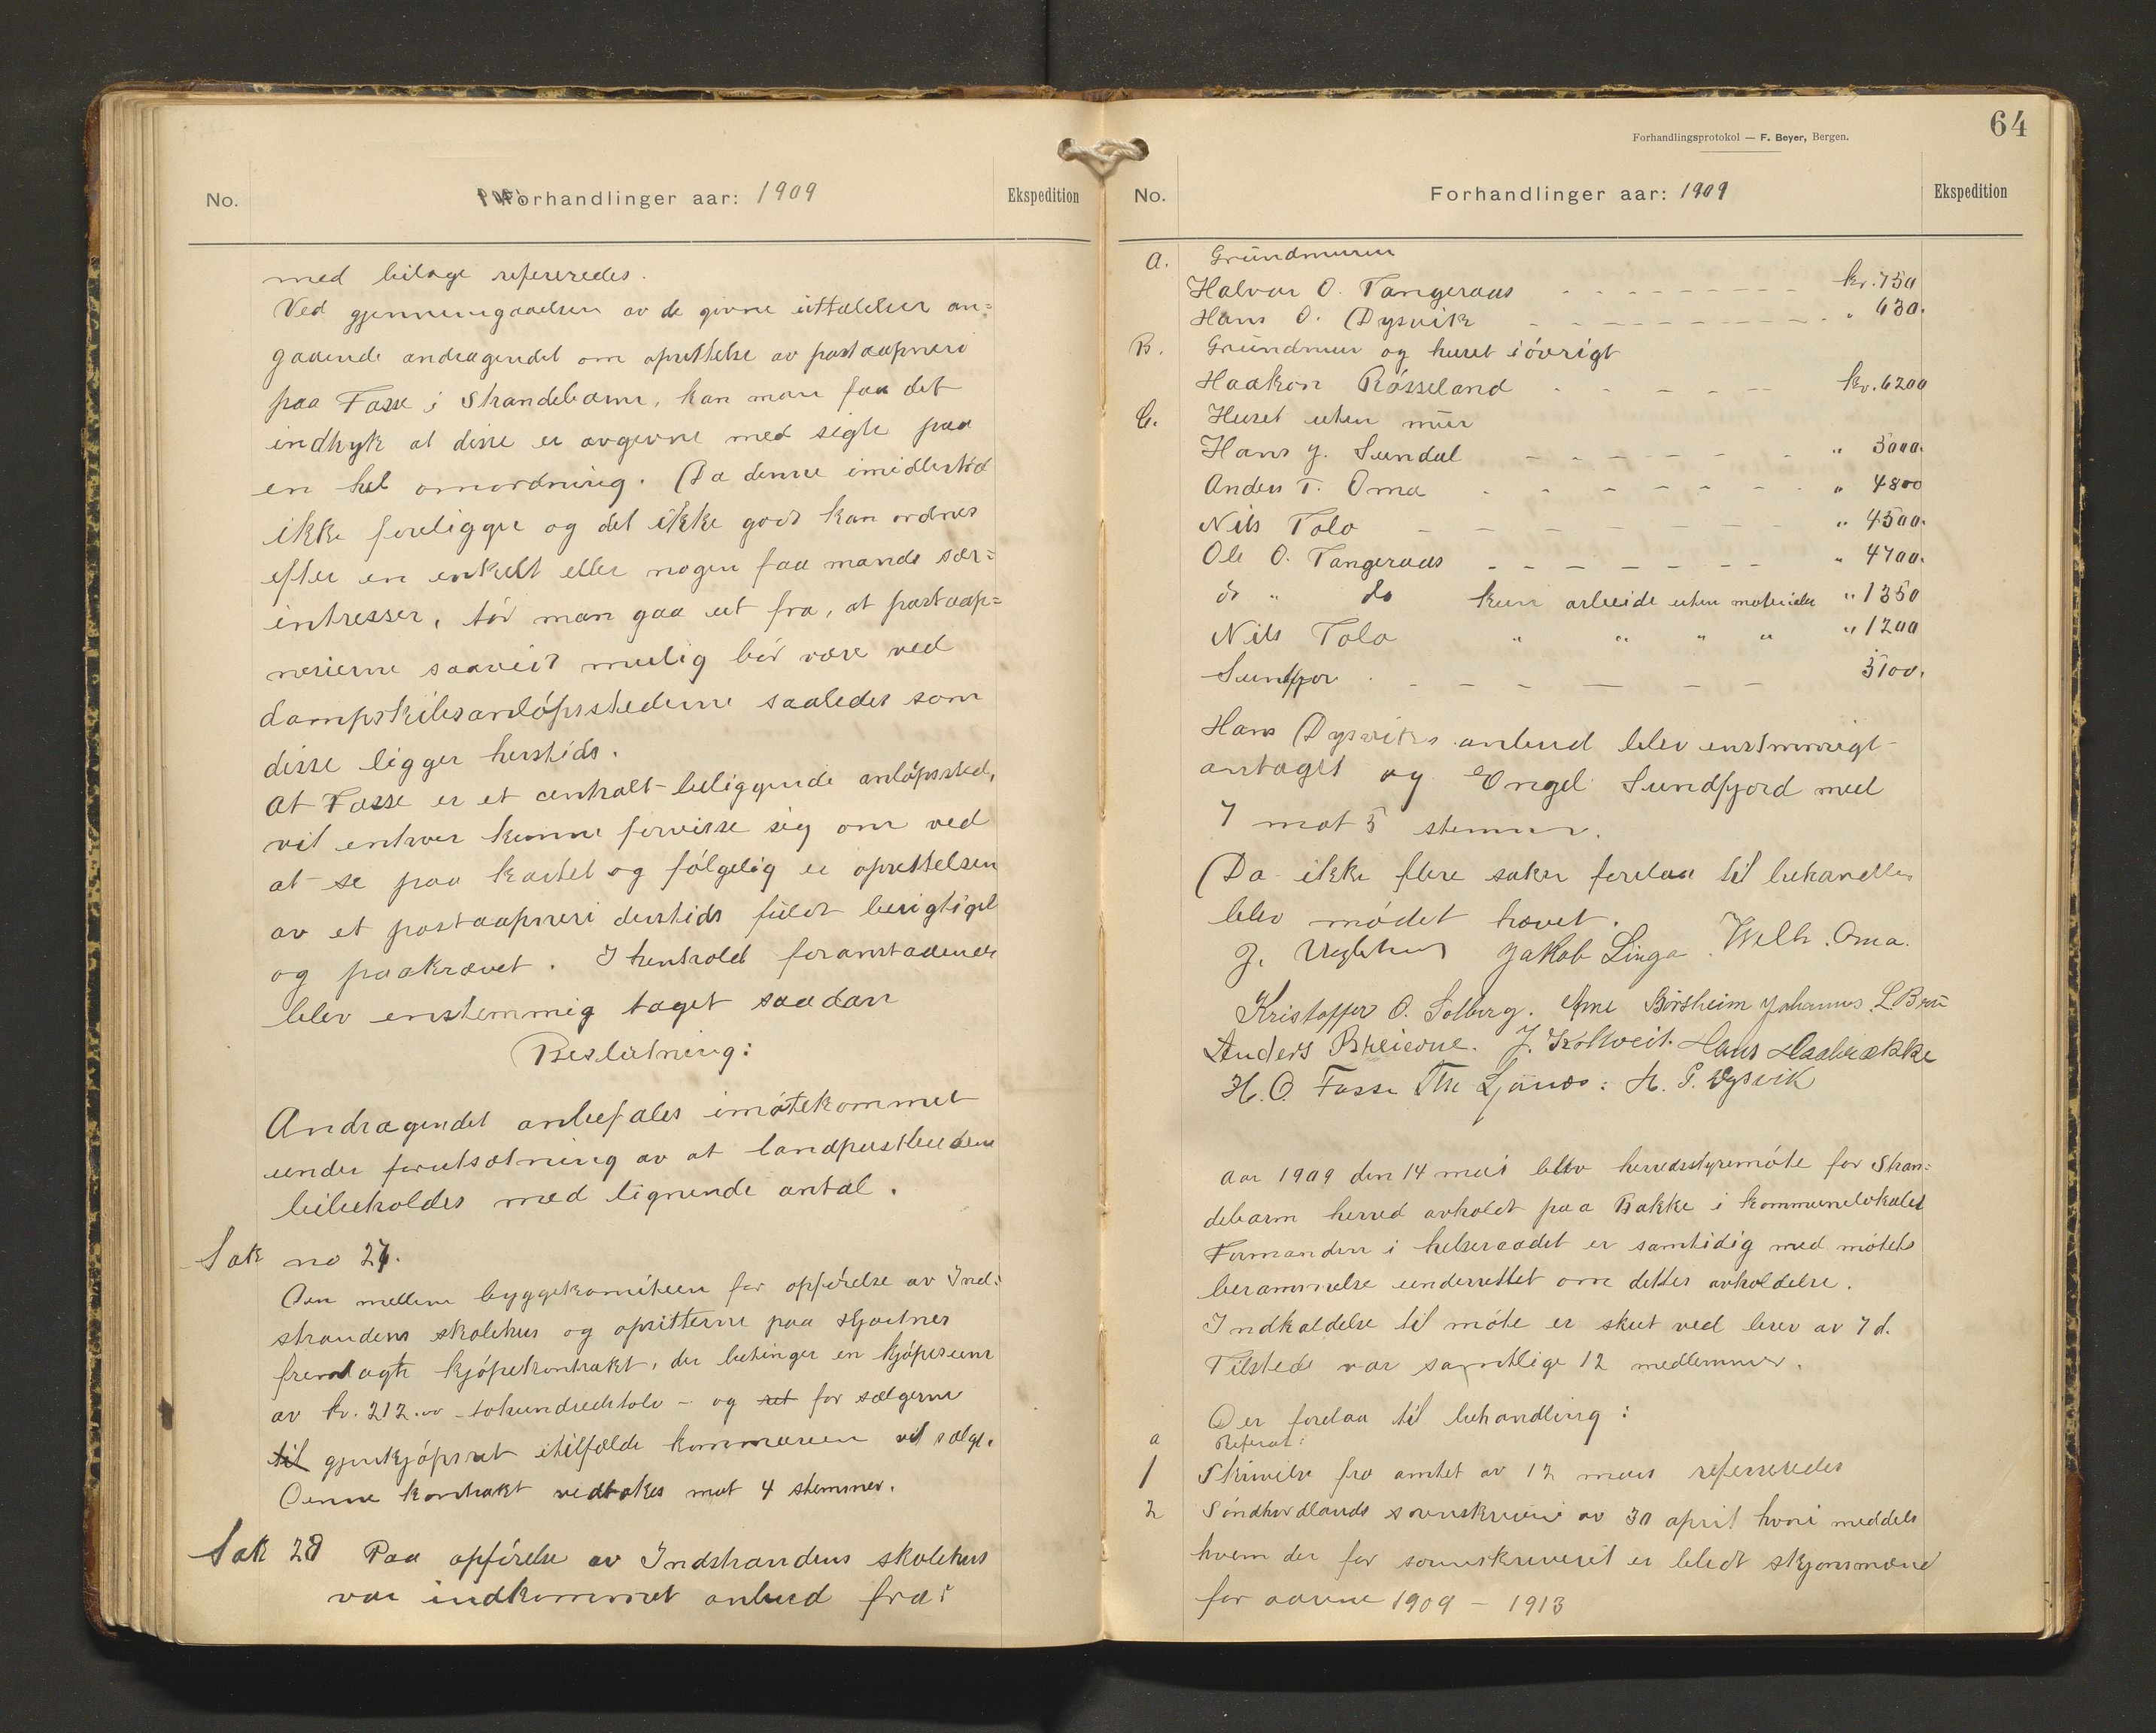 No. Forhandlinger aar: 1909 Ekspedition
med bilage refereredes.
Ved gjennemgaaelsen av de givne uttalelser an-
gaaende andragendet om oprettelse av postaapneri
paa Fosse i Strandebarm, kan man faa det
indtryk at disse er avgivne med sigte paa
en hel omordning. Da denne imidlertid
ikke foreligger og det ikke godt kan ordnes
efter en enkelt eller nogen faa mands sær-
intresser, tør man gaa ut fra, at postaap-
nerierne saavidt mulig bør være ved
dampskibsanløpsstederne saaledes som
disse ligger herstids.
At Fosse er et centralt beliggende anløpssted,
vil enhver kunne forvisse sig om ved
at se paa kartet og følgelig er oprettelsen
av et postaapneri derstids fuldt berigtiget
og paakrævet. I henhold foranstaaende
blev enstemmig taget saadan
Beslutning:
Andragendet anbefales imøtekommet
under forutsætning av at landpostbudene
bibeholdes med lignende antal.
Sak no 27.
Den mellem byggekomiteen for opførelse av Ind-
strandens skolehus og opsitterne paa
fremlagte kjøpekontrakt, der betinger en kjøpesum
av kr. 212.00 - tohundredetolv - og ret for sælgerne
til gjenkjøpsret itilfælde kommunen vil sælge.
Denne kontrakt vedtokes mot 4 stemmer.
Sak 28 Paa opførelse av Indstrandens skolehus
var indkommet anbud fra:
Forhandlingsprotokol — F. Beyer, Bergen.
64
No. Forhandlinger aar: 1909 Ekspedition
a. Grundmuren
Halvor O. Tangeraas kr. 750
Hans O. Dysvik " 630.
B. Grundmur og huset iøvrigt
Haakon Røsseland kr. 6200
C. Huset uten mur
Hans J. Sundal " 5000.
Anders T. Oma " 4800
Nils Tolo " 4500.
Ole O. Tangeraas " 4700.
do " do kun arbeide uten materialer " 1350
Nils Tolo " " " " " 1200
Sundfjor 5100.
Hans Dysviks anbud blev enstemmigt
antaget og Engel Sundfjord med
7 mot 5 stemmer.
Da ikke flere saker forelaa til behandling
blev mødet hævet.
J. Jakob Linga. Welh. Oma.
Kristoffer O. Solberg. Arne Børsheim Johannes L. Bru
Anders J. Hans
H. O. Fosse H. P. Dysvik
Aar 1909 den 14 mai blev herredsstyremøte for Stran-
debarm herred avholdt paa Bakke i kommunelokalet
Formanden i helseraadet er samtidig med møtets
berammelse underrettet om dettes avholdelse.
Indkaldelse til møte er skeet ved brev av 7 d.
Tilstede var samtlige 12 medlemmer.
Der forelaa til behandling:
a Referat:
1 Skrivelse fra amtet av 12 mars refereredes
2 Søndhordlands sorenskriveri av 30 april hvori meddeles
hvem der for sorenskriveriet er bledt skjønsmænd
for aarene 1909 - 1913